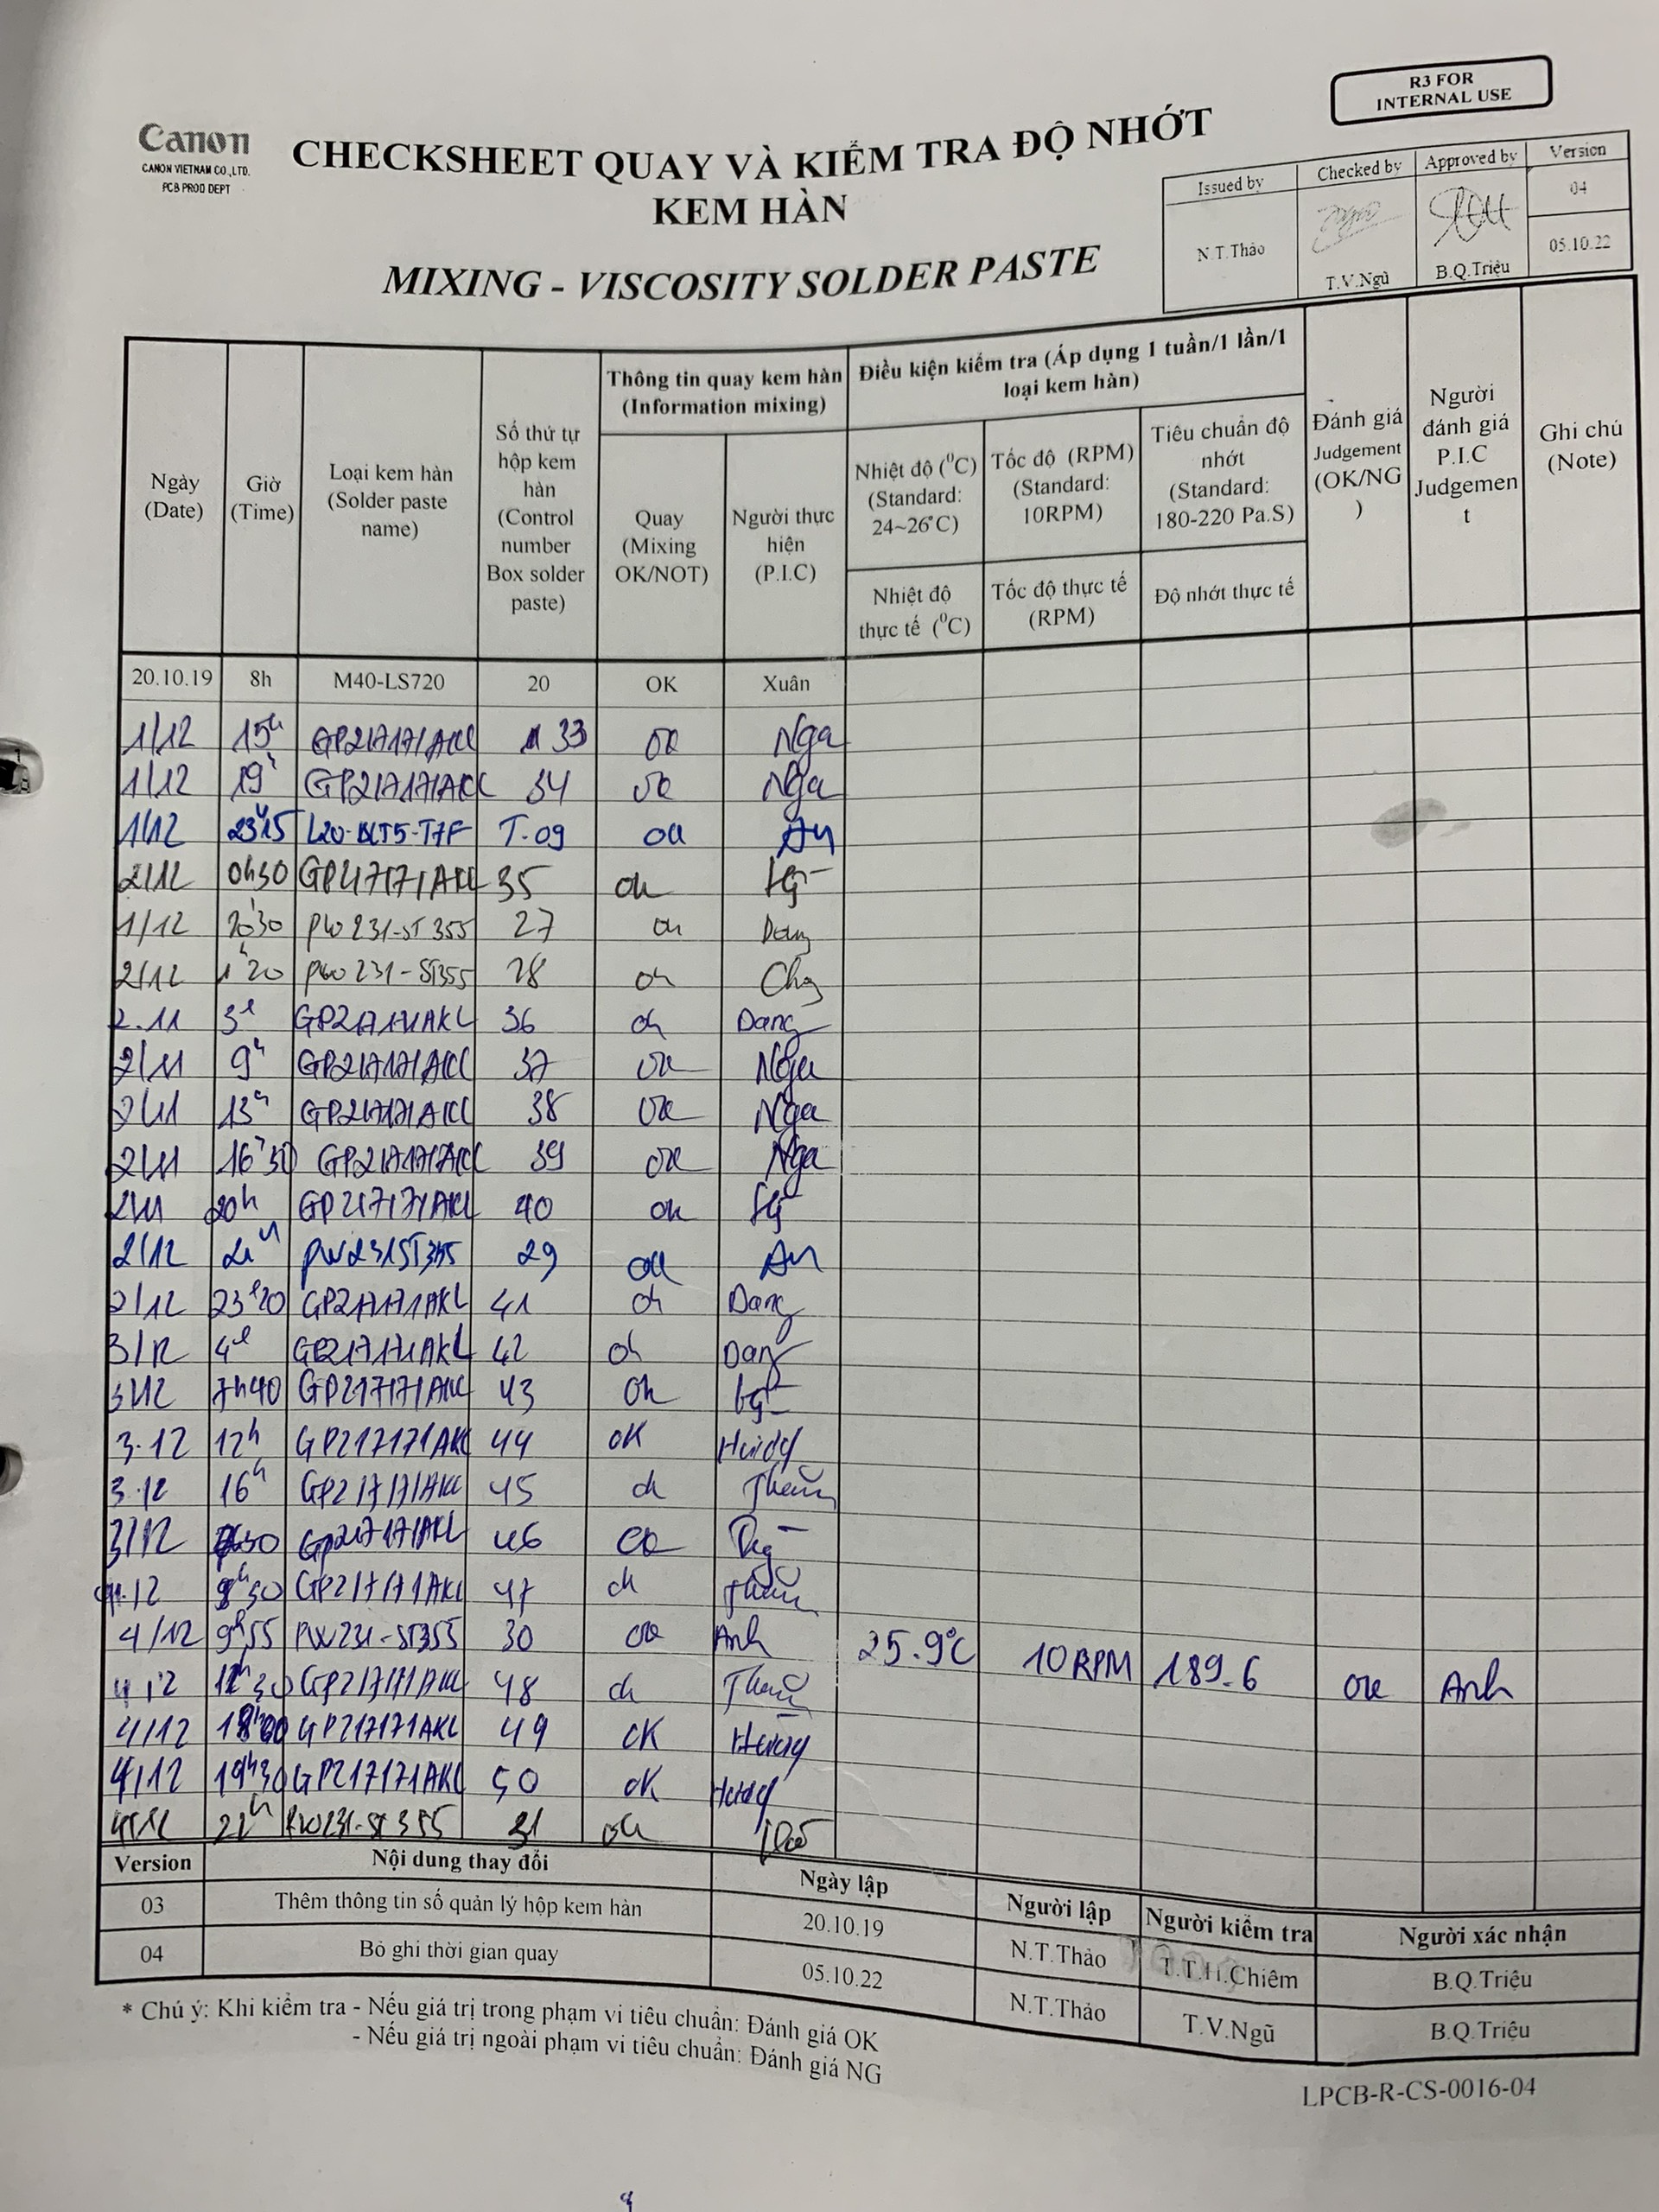 R3 FOR
INTERNAL USE
Canon
CANON VIETNAM CO.,LTD.
PCB PROD DEPT
CHECKSHEET QUAY VÀ KIỂM TRA ĐỘ NHỚT
KEM HÀN
MIXING - VISCOSITY SOLDER PASTE
Issued by Checked by Approved by Version
04
N.T.Thảo T.V.Ngũ B.Q.Triệu 05.10.22
Ngày
(Date)
Giờ
(Time)
Loại kem hàn
(Solder paste
name)
Số thứ tự
hộp kem
hàn
(Control
number
Box solder
paste)
Thông tin quay kem hàn
(Information mixing)
Quay
(Mixing
OK/NOT)
Người thực
hiện
(P.I.C)
Điều kiện kiểm tra (Áp dụng 1 tuần/1 lần/1
loại kem hàn)
Nhiệt độ (⁰C)
(Standard:
24~26°C)
Tốc độ (RPM)
(Standard:
10RPM)
Tiêu chuẩn độ
nhớt
(Standard:
180-220 Pa.S)
Nhiệt độ
thực tế (⁰C)
Tốc độ thực tế
(RPM)
Độ nhớt thực tế
Đánh giá
Judgement
(OK/NG
)
Người
đánh giá
P.I.C
Judgemen
t
Ghi chú
(Note)
20.10.19 8h M40-LS720 20 OK Xuân
1/12 15h GP217171AKL 33 ok Nga
1/12 19h GP217171AKL 34 ok Nga
1/12 23h15 L20-BLT5-T7F T.09 ok An
2/12 0h30 GP217171AKL 35 ok
1/12 PW231-ST355 27 ok Dang
2/12 1h20 PW231-ST355 28 ok
2.11 3h GP217171AKL 36 ok Dang
2/11 9h GP217171AKL 37 ok Nga
2/11 13h GP217171AKL 38 ok Nga
2/11 16h30 GP217171AKL 39 ok Nga
2/11 20h GP217171AKL 40 ok
2/12 PW231ST355 29 ok An
2/12 23h20 GP217171AKL 41 ok Dang
3/12 4h GP217171AKL 42 ok Dang
3/12 7h40 GP217171AKL 43 ok
3.12 12h GP217171AKL 44 OK
3.12 16h GP217171AKL 45 ok
3/12 GP217171AKL 46 ok
4.12 GP217171AKL 47 ok
4/12 9h55 PW231-ST355 30 ok Anh 25.9°C 10RPM 189.6 ok Anh
4/12 GP217171AKL 48 ok
4/12 GP217171AKL 49 OK
4/12 19h30 GP217171AKL 50 OK
4/12 22h PW231-ST355 31 ok
Version Nội dung thay đổi Ngày lập Người lập Người kiểm tra Người xác nhận
03 Thêm thông tin số quản lý hộp kem hàn 20.10.19 N.T.Thảo T.T.H.Chiêm B.Q.Triệu
04 Bỏ ghi thời gian quay 05.10.22 N.T.Thảo T.V.Ngũ B.Q.Triệu
* Chú ý: Khi kiểm tra - Nếu giá trị trong phạm vi tiêu chuẩn: Đánh giá OK
- Nếu giá trị ngoài phạm vi tiêu chuẩn: Đánh giá NG
LPCB-R-CS-0016-04